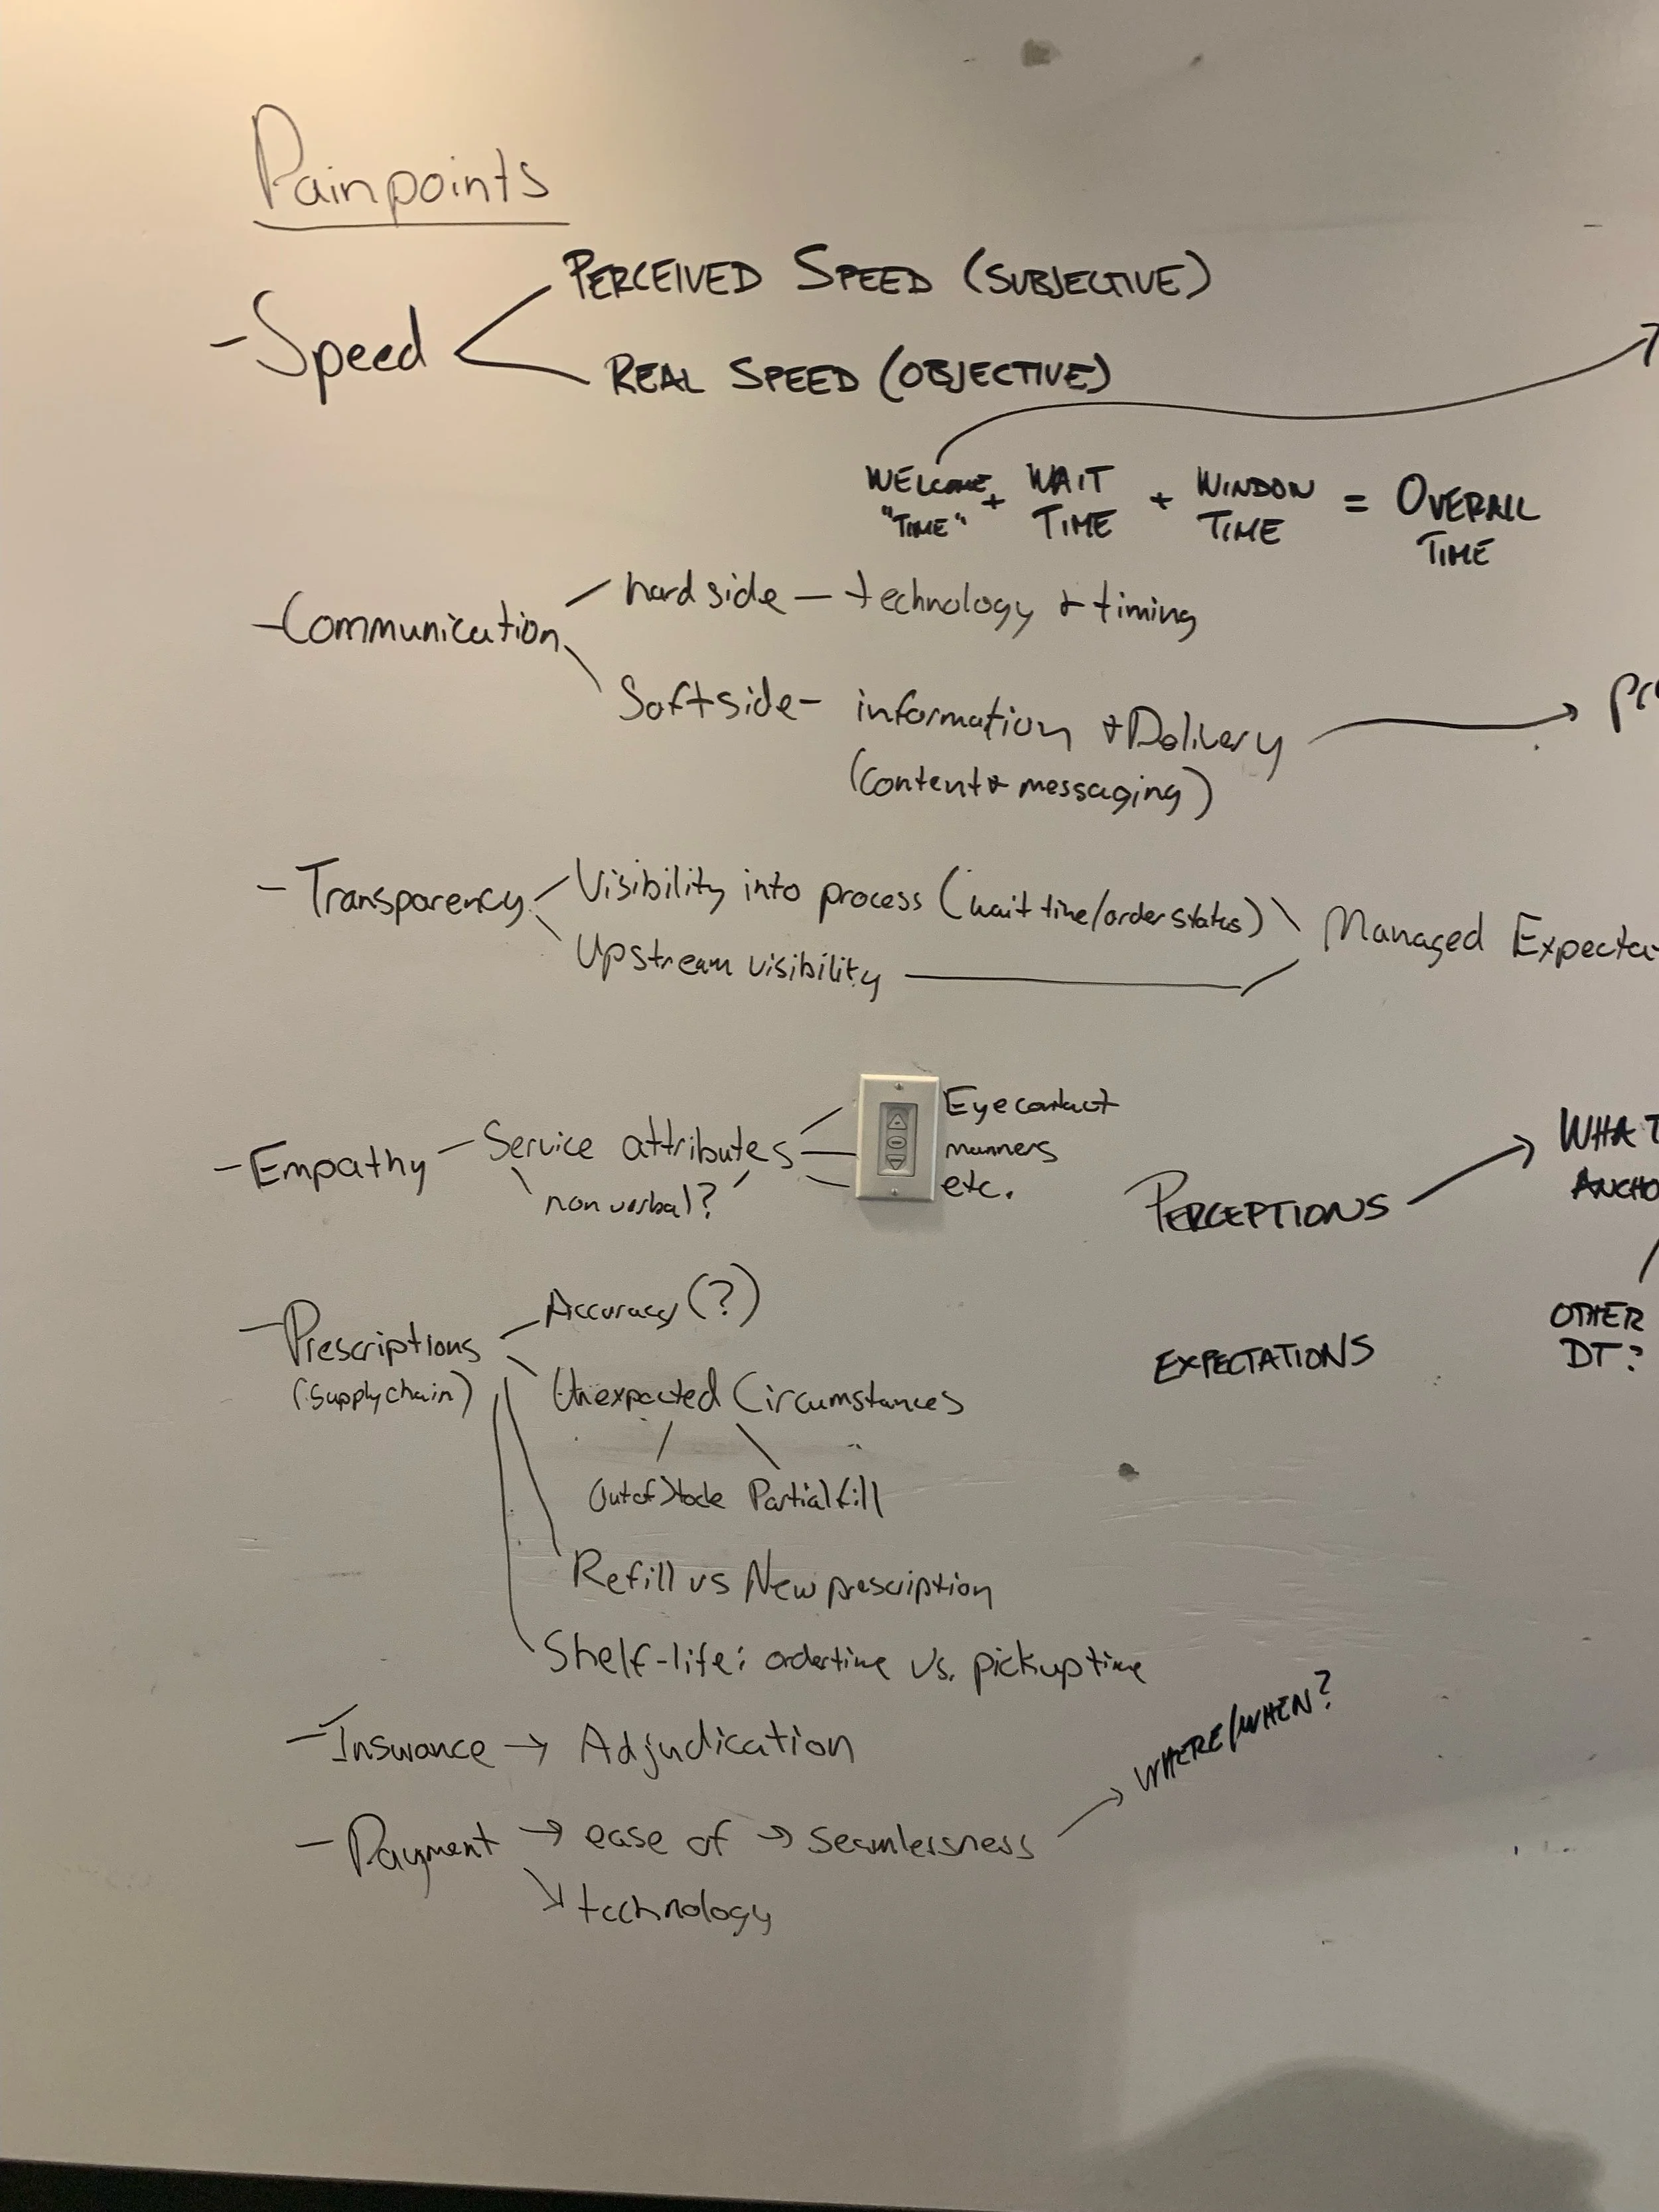 Painpoints
PERCEIVED SPEED (SUBJECTIVE)
- Speed
REAL SPEED (OBJECTIVE)
WELCOME "TIME" + WAIT TIME + WINDOW TIME = OVERALL TIME
- Communication
hard side — technology & timing
Soft side - information & Delivery
(content & messaging)
- Transparency
Visibility into process (wait time/order status)
Upstream visibility
Managed
- Empathy - Service attributes
non verbal?
Eye contact
manners
etc.
PERCEPTIONS → WHAT
EXPECTATIONS
OTHER
DT?
- Prescriptions
(supply chain)
Accuracy (?)
Unexpected Circumstances
Out of Stock Partial fill
Refill vs New prescription
Shelf-life: order time vs. pickup time
- Insurance → Adjudication
- Payment → ease of → seamlessness → WHERE/WHEN?
↘ technology